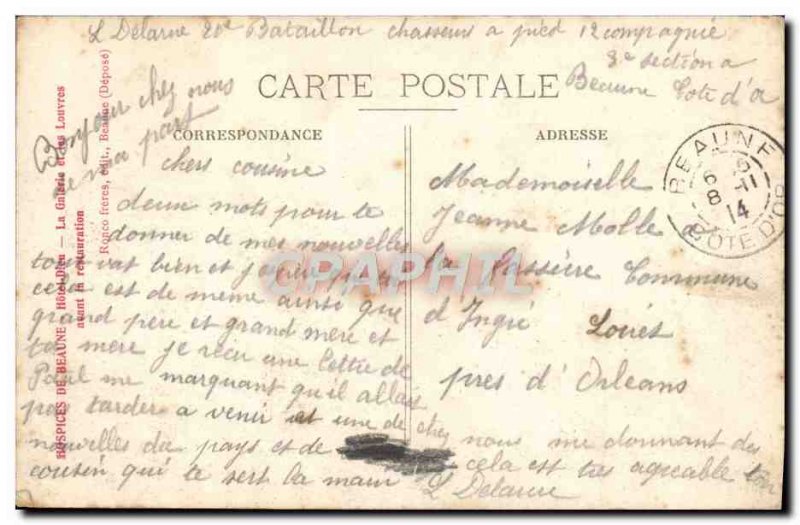 L Delarue 20e Bataillon chasseurs a pied 12 compagnie
3e section a
Beaune Cote d'or
Bonjour chez nous
de ma part
CARTE POSTALE
CORRESPONDANCE
ADRESSE
HOSPICES DE BEAUNE — Hôtel-Dieu — La Galerie et les Louvres
avant la restauration
Ronco frères, édit., Beaune (Déposé)
chers cousine
deux mots pour te
donner de mes nouvelles
tout vat bien et j'espère que
cela est de même ainsi que
grand père et grand mère et
ta mere je recu une lettre de
Paul me marquant qu'il allais
pas tarder a venir et une de chez nous me donnant des
nouvelles du pays et de cela est tres agreable ton
cousin qui te sert la main L Delarue
Mademoiselle
Jeanne Molle
la Commune
d'Ingré Loiret
pres d'Orleans
BEAUNE
6 -11
14
COTE D'OR
CPAPHIL